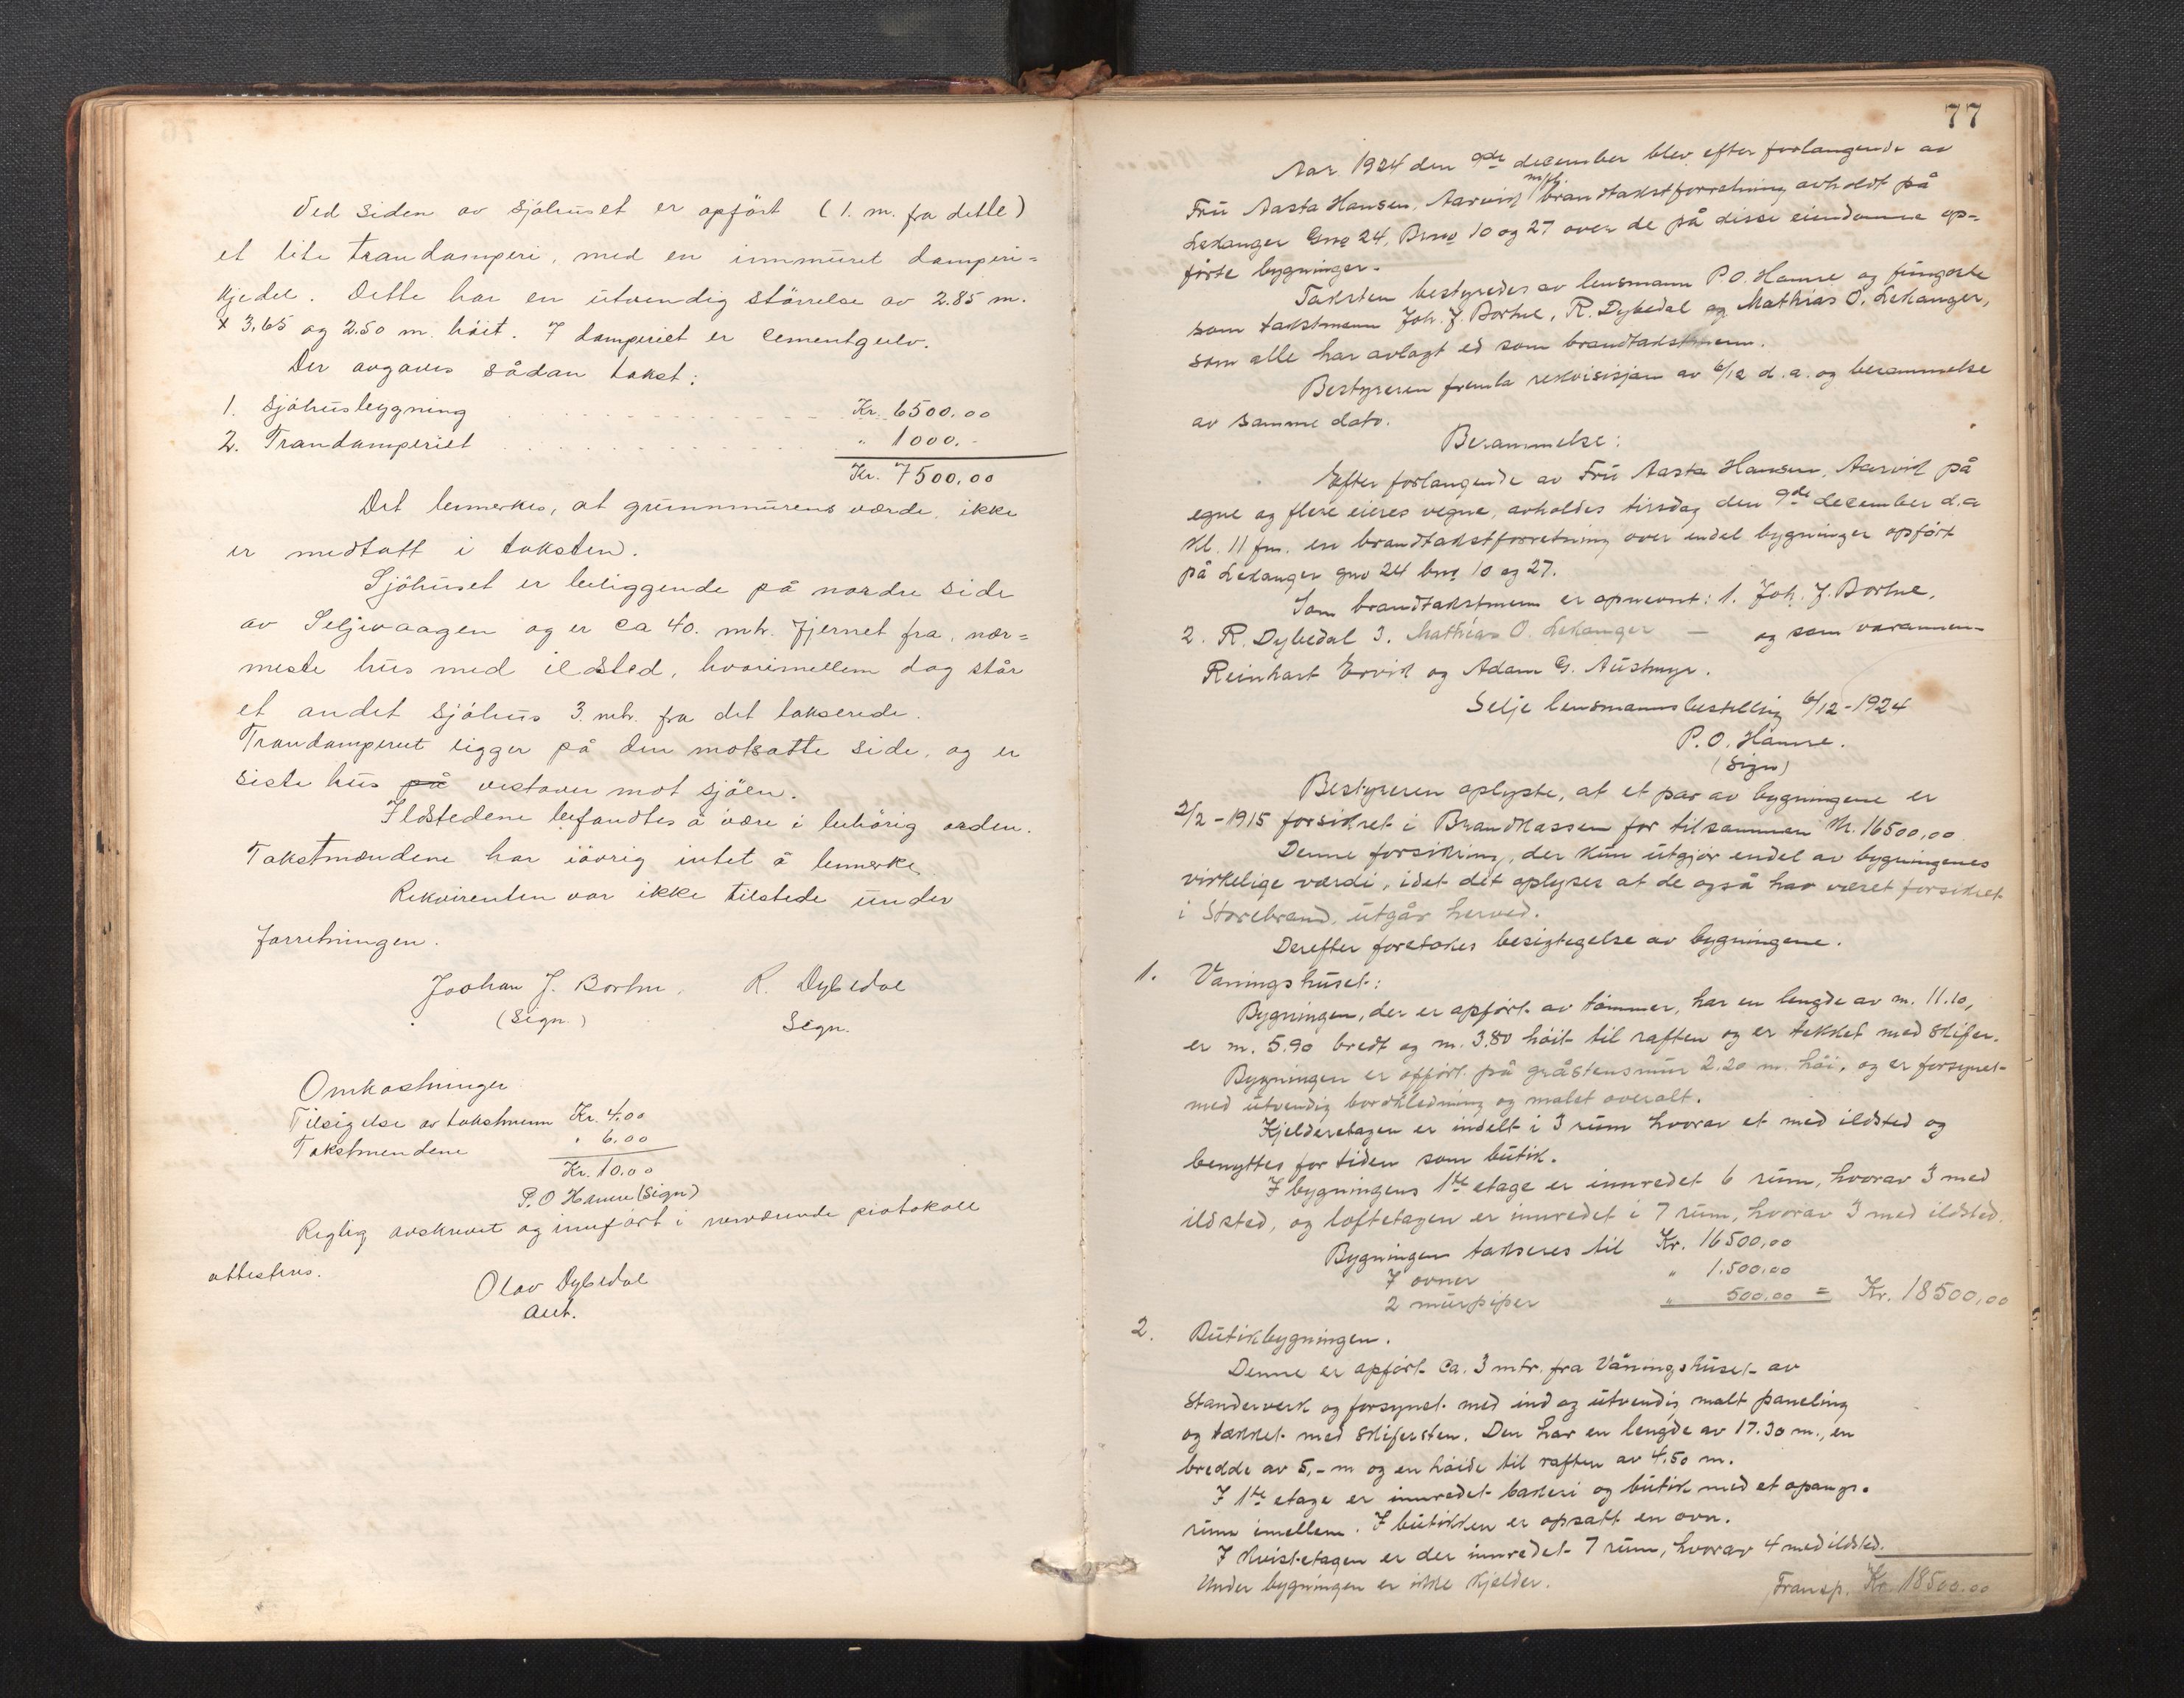 Ved siden av sjöhuset er opfört (1. m. fra dette)
et lite trandamperi, med en innmuret damperi=
kjedel. Dette har en utvendig störrelse av 2.85 m.
x 3,65 og 2.50 m. höit. I damperiet er cementgulv.
Der avgaves sådan takst:
1. Sjöhusbygning Kr. 6500.00
2. Trandamperiet " 1000.-
Kr. 7500.00
Det bemerkes, at grunnmurens værde, ikke
er medtatt i taksten.
Sjöhuset er beliggende på nordre side
av Seljevaagen og er ca 40. mtr. fjernet fra, nær=
meste hus med ildsted, hvorimellem dog står
et andet sjöhus 3. mtr. fra det takserede.
Trandamperiet ligger på den motsatte side, og er
siste hus på vestover mot sjöen.
Ildstedene befandtes å være i behörig orden.
Takstmændene har iövrig intet å bemerke,
Rekvirenten var ikke tilstede under
forretningen.
Joohan J. Borhn. R. Dybedal
(Sign.) Sign.
Omkostninger
Tilsigelse av takstmenn Kr. 4.00
Takstmendene " 6.00
Kr. 10.00
P. O Hamre (Sign)
Rigtig avskrevet og innfört i nærværende protokoll
attesteres.
Olav Dybedal
aut.
77
Aar 1924 den 9de december blev efter forlangende av
m/fl.
Fru Aasta Hansen, Aarvik brandtakstforretning avholdt på
Lekanger Gno 24, Brno 10 og 27 over de på disse eiendomme op=
förte bygninger.
Taksten bestyredes av lensmann P. O. Hamre og fungerte
som takstmenn Joh. J. Borhne, R. Dybedal og Mathias O. Lekanger,
som alle har avlagt ed som brandtakstmenn.
Bestyreren fremla rekvisisjon av 6/12 d. a. og berammelse
av samme dato.
Berammelse:
Efter forlangende av Fru Aasta Hansen, Aarvik på
egne og flere eieres vegne, avholdes tirsdag den 9de december d.a
kl. 11 fm. en brandtakstforretning over endel bygninger opfört
på Lekanger gno 24 bno 10 og 27.
Som brandtakstmenn er opnevnt: 1. Joh. J. Borhne,
2. R. Dybedal 3. Mathias O. Lekanger — og som varamenn
Reinhart Ervik og Adam G. Austmyr.
Selje lensmannsbestilling 6/12-1924
P. O. Hamre.
(Sign)
Bestyreren oplyste, at et par av bygningene er
2/2-1915 forsikret i Brandkassen for tilsammen kr. 16500,00
Denne forsikring, der kun utgjör endel av bygningenes
virkelige værdi, idet det oplyses at de også har været forsikret
i Storebrand, utgår herved.
Derefter foretokes besigtegelse av bygningene.
1. Vaningshuset:
Bygningen, der er opfört av tömmer, har en lengde av m. 11.10,
er m. 5.90 bredt og m. 3.80 höit til raften og er tekket med skifer.
Bygningen er opfört på gråstensmur 2.20 m. höi, og er forsynet
med utvendig bordkledning og malet overalt.
Kjelderetagen er indelt i 3 rum hvorav et med ildsted og
benyttes for tiden som butik.
I bygningens 1te etage er innredet 6 rum, hvorav 3 med
ildsted, og loftetagen er innredet i 7 rum, hvorav 3 med ildsted.
Bygningen takseres til Kr. 16500,00
7 ovner " 1.500.00
2 murpiper " 500.00 = Kr. 18500,00
2. Butikbygningen.
Denne er opfört ca. 3 mtr. fra Våningshuset av
standerverk og forsynet med ind og utvendig malt paneling
og tækket med skifersten. Den har en lengde av 17.30 m., en
bredde av 5,- m og en höide til raften av 4.50 m.
I 1te etage er innredet bakeri og butik med et opgangs-
rum imellem. I butikken er opsatt en ovn.
I kvistetagen er der innredet 7 rum, hvorav 4 med ildsted.
Under bygningen er ikke kjelder.
Transp. Kr. 18500.00